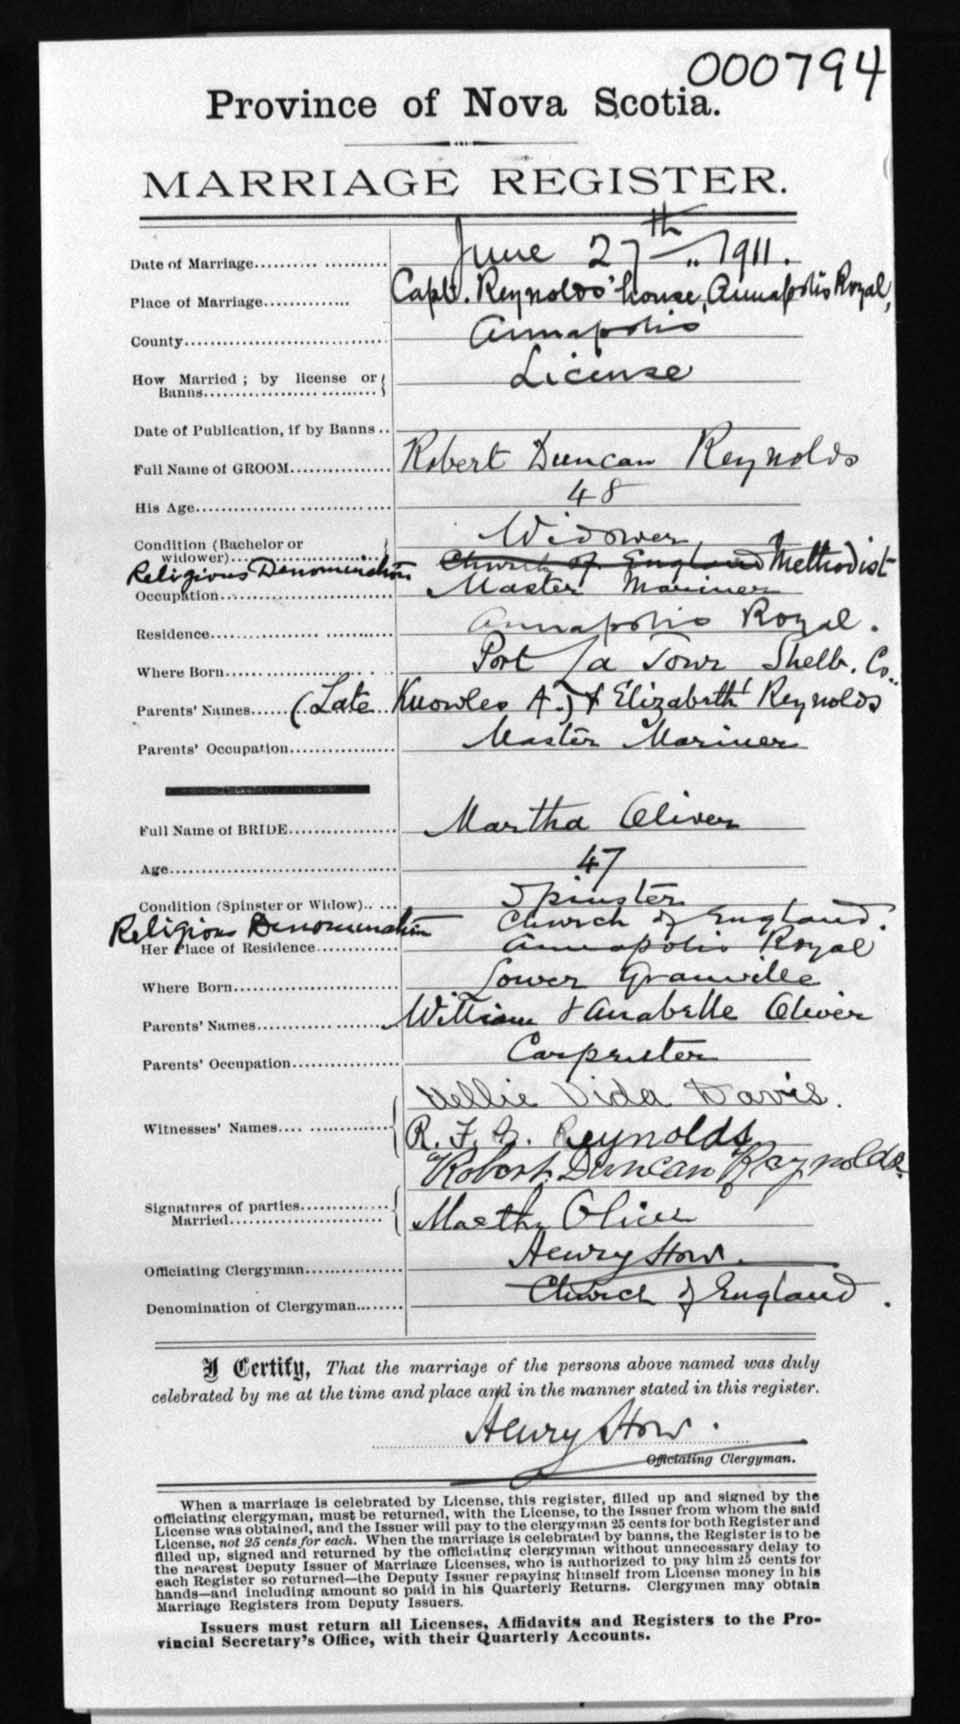 000794
Province of Nova Scotia.
MARRIAGE REGISTER.
Date of Marriage.......... June 27th 1911.
Place of Marriage............. Capt. Reynolds' house, Annapolis Royal,
County.............................. Annapolis
How Married ; by license or License
Banns..........................
Date of Publication, if by Banns ..
Full Name of GROOM............... Robert Duncan Reynolds
His Age............................. 48
Condition (Bachelor or Widower
widower)....................
Religious Denomination Church of England Methodist
Occupation......................... Master Mariner
Residence......................... Annapolis Royal.
Where Born......................... Port La Tour Shelb. Co.
Parents' Names...... (Late Knowles A.) & Elizabeth Reynolds
Parents' Occupation................ Master Mariner
Full Name of BRIDE................. Martha Oliver
Age................................. 47
Condition (Spinster or Widow)..... Spinster
Religious Denomination Church of England.
Her Place of Residence............. Annapolis Royal
Where Born......................... Lower Granville
Parents' Names................... William & Anabelle Oliver
Parents' Occupation................ Carpenter
Nellie Vida Davis.
Witnesses' Names.... ............... R. F. Reynolds
Robert Duncan Reynolds
Signatures of parties.............
Married....................... Martha Oliver
Officiating Clergyman............... Henry How.
Denomination of Clergyman........ Church of England.
I Certify, That the marriage of the persons above named was duly
celebrated by me at the time and place and in the manner stated in this register.
Henry How.
Officiating Clergyman.
When a marriage is celebrated by License, this register, filled up and signed by the
officiating clergyman, must be returned, with the License, to the Issuer from whom the said
License was obtained, and the Issuer will pay to the clergyman 25 cents for both Register and
License, not 25 cents for each. When the marriage is celebrated by banns, the Register is to be
filled up, signed and returned by the officiating clergyman without unnecessary delay to
the nearest Deputy Issuer of Marriage Licenses, who is authorized to pay him 25 cents for
each Register so returned—the Deputy Issuer repaying himself from License money in his
hands—and including amount so paid in his Quarterly Returns. Clergymen may obtain
Marriage Registers from Deputy Issuers.
Issuers must return all Licenses, Affidavits and Registers to the Pro-
vincial Secretary's Office, with their Quarterly Accounts.